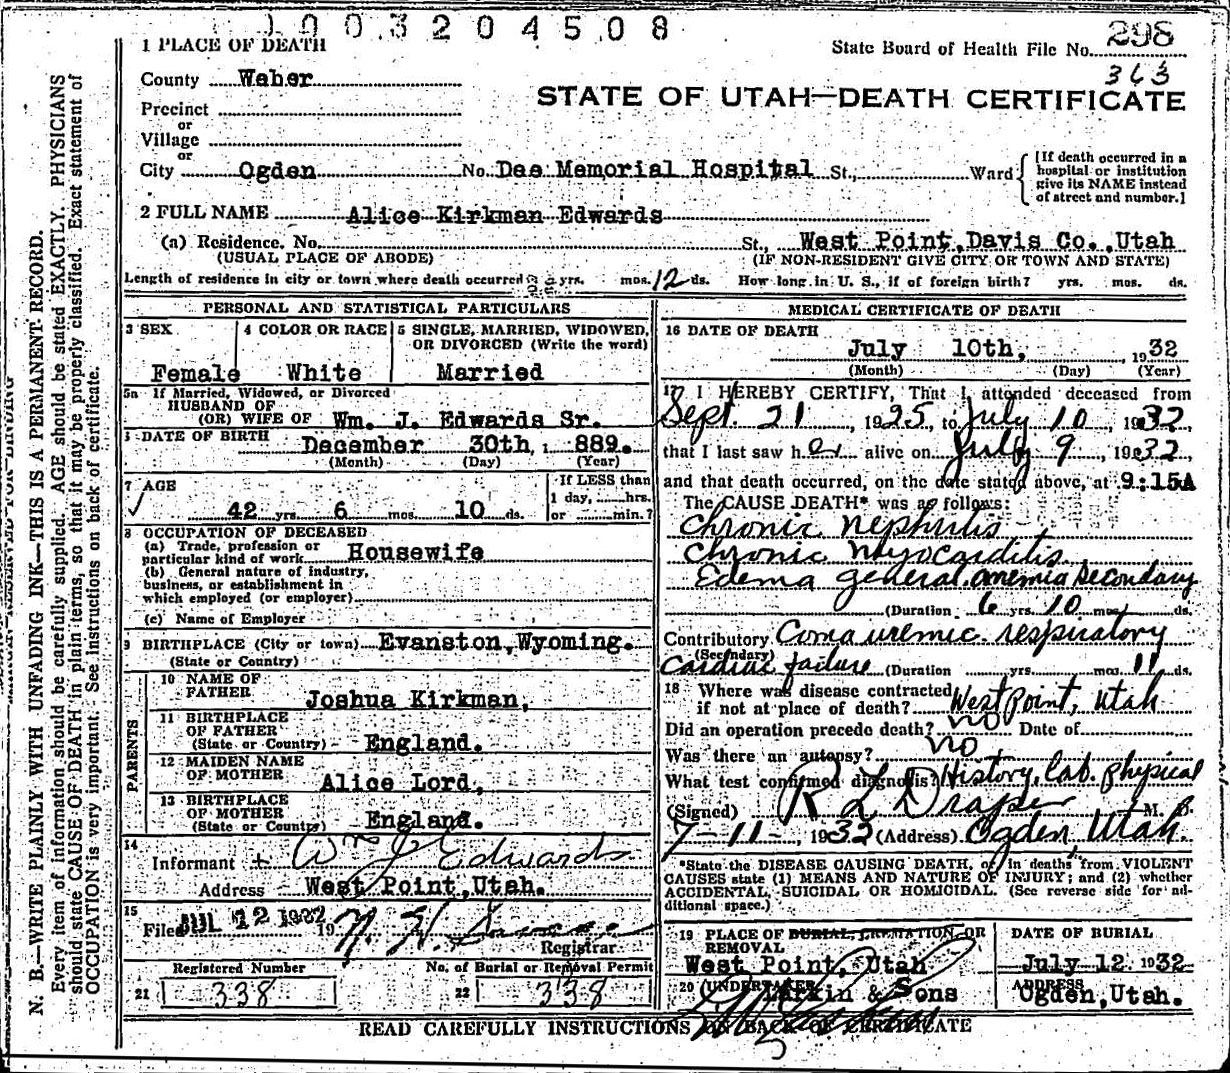 0 0 3 2 0 4 5 0 8
1 PLACE OF DEATH
State Board of Health File No. 298
363
County Weber
STATE OF UTAH—DEATH CERTIFICATE
Precinct
or
Village
or
City Ogden No. Dee Memorial Hospital St., Ward
[If death occurred in a hospital or institution give its NAME instead of street and number.]
2 FULL NAME Alice Kirkman Edwards
(a) Residence. No. St., West Point, Davis Co., Utah
(USUAL PLACE OF ABODE) (IF NON-RESIDENT GIVE CITY OR TOWN AND STATE)
Length of residence in city or town where death occurred yrs. mos. 12 ds. How long in U. S., if of foreign birth? yrs. mos. ds.
PERSONAL AND STATISTICAL PARTICULARS
3 SEX
Female
4 COLOR OR RACE
White
5 SINGLE, MARRIED, WIDOWED, OR DIVORCED (Write the word)
Married
5a If Married, Widowed, or Divorced
HUSBAND OF
(OR) WIFE OF Wm. J. Edwards Sr.
DATE OF BIRTH
December 30th, 889.
(Month) (Day) (Year)
7 AGE
42 yrs. 6 mos. 10 ds.
If LESS than
1 day, hrs.
or min.?
8 OCCUPATION OF DECEASED
(a) Trade, profession or
particular kind of work Housewife
(b) General nature of industry,
business, or establishment in
which employed (or employer)
(c) Name of Employer
9 BIRTHPLACE (City or town) Evanston, Wyoming.
(State or Country)
PARENTS
10 NAME OF FATHER
Joshua Kirkman,
11 BIRTHPLACE OF FATHER
(State or Country) England.
12 MAIDEN NAME OF MOTHER
Alice Lord,
13 BIRTHPLACE OF MOTHER
(State or Country) England.
14
Informant + Wm J Edwards
Address West Point, Utah.
15
Filed JUL 12 1932 19
Registrar
Registered Number
21 338
No. of Burial or Removal Permit
22 338
MEDICAL CERTIFICATE OF DEATH
16 DATE OF DEATH
July 10th, 1932
(Month) (Day) (Year)
17 I HEREBY CERTIFY, That I attended deceased from
Sept. 21, 1925, to July 10, 1932,
that I last saw her alive on July 9, 1932,
and that death occurred, on the date stated above, at 9:15A
The CAUSE DEATH* was as follows:
Chronic nephritis
Chronic myocarditis
Edema general, anemia secondary
(Duration 6 yrs. 10 mos. ds.
Contributory Coma uremic respiratory
(Secondary)
Cardiac failure (Duration yrs. mos. 11 ds.
18 Where was disease contracted
if not at place of death? West Point, Utah
Did an operation precede death? no Date of
Was there an autopsy? no
What test confirmed diagnosis? History, lab. physical
(Signed) R L Draper M. D.
7-11-, 1932 (Address) Ogden, Utah.
*State the DISEASE CAUSING DEATH, or in deaths from VIOLENT
CAUSES state (1) MEANS AND NATURE OF INJURY; and (2) whether
ACCIDENTAL, SUICIDAL OR HOMICIDAL. (See reverse side for ad-
ditional space.)
19 PLACE OF BURIAL, CREMATION, OR
REMOVAL
West Point, Utah
DATE OF BURIAL
July 12 1932
20 (UNDERTAKER
Larkin & Sons
ADDRESS
Ogden, Utah.
READ CAREFULLY INSTRUCTIONS ON BACK OF CERTIFICATE
N. B.—WRITE PLAINLY WITH UNFADING INK—THIS IS A PERMANENT RECORD.
Every item of information should be carefully supplied. AGE should be stated EXACTLY. PHYSICIANS
should state CAUSE OF DEATH in plain terms, so that it may be properly classified. Exact statement of
OCCUPATION is very important. See instructions on back of certificate.